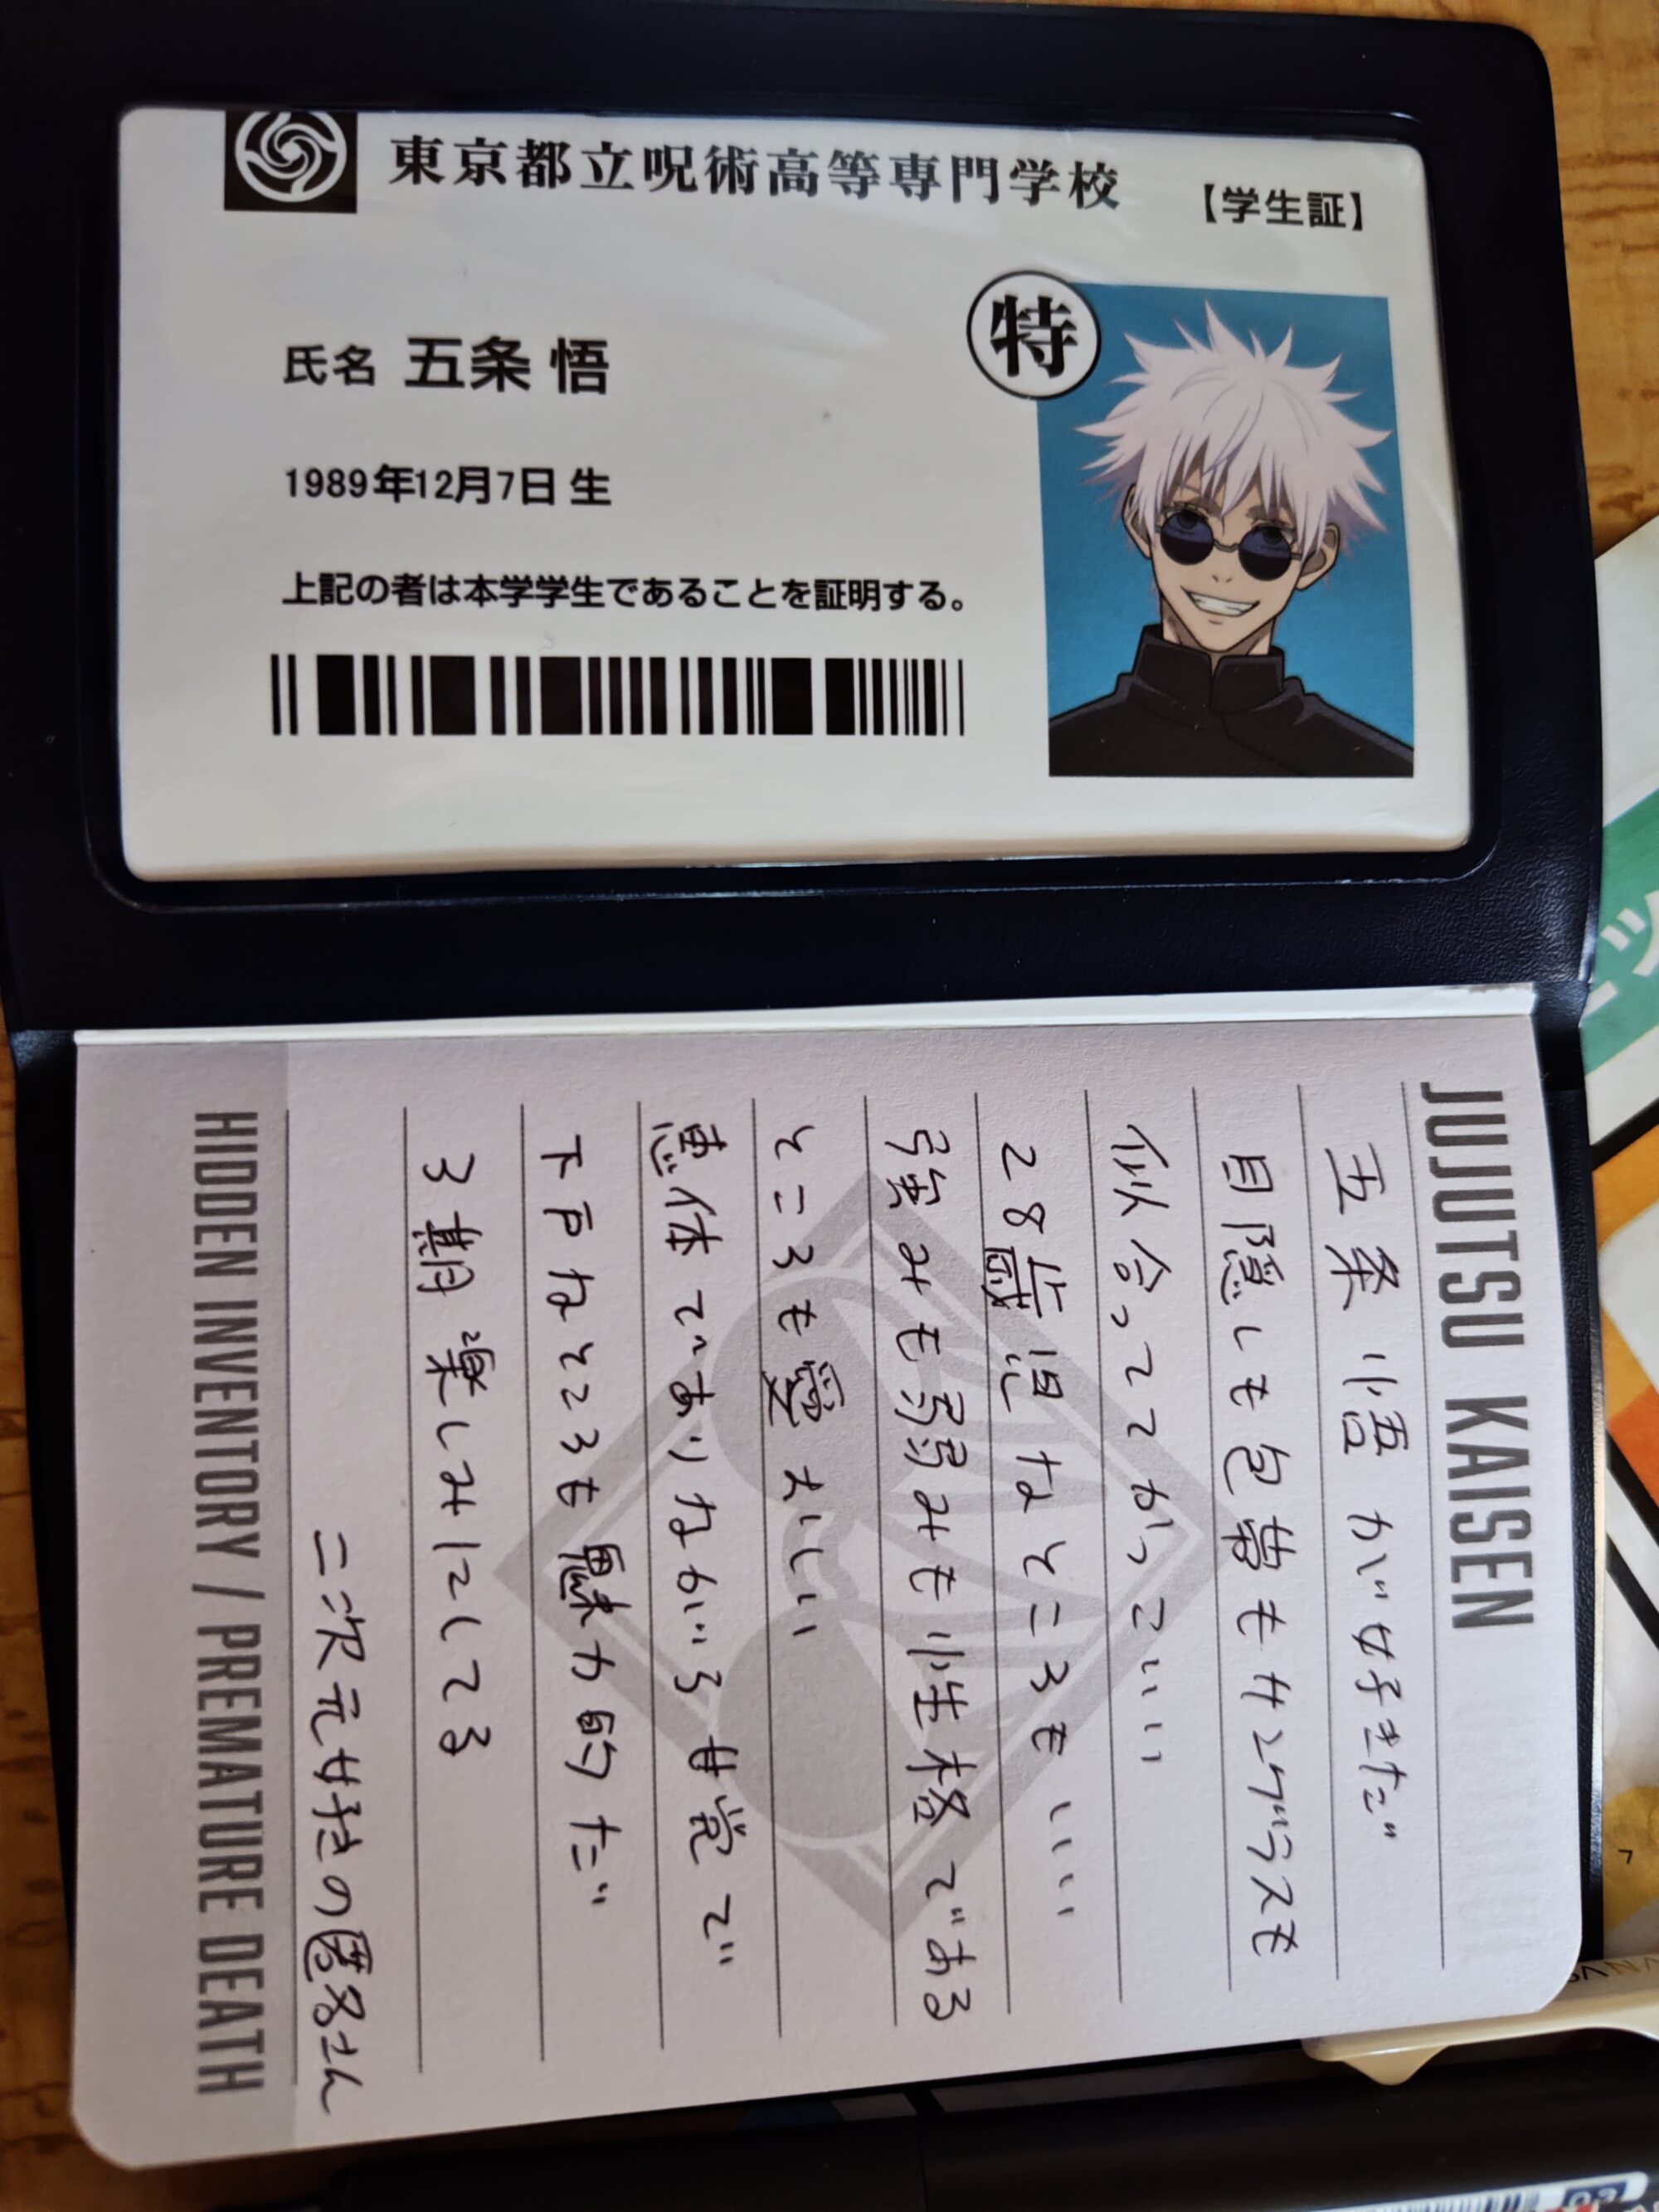 東京都立呪術高等専門学校
【学生証】
特
氏名 五条 悟
1989年12月7日 生
上記の者は本学学生であることを証明する。
JUJUTSU KAISEN
五条悟が好きだ
目隠しも包帯もサングラスも
似合っててかっこいい
28歳児なところもいい
強みも弱みも性格である
ところも愛おしい
恵体でありながら甘党で
下戸なところも魅力的だ
3期楽しみにしてる
二次元好きの匿名さん
HIDDEN INVENTORY / PREMATURE DEATH